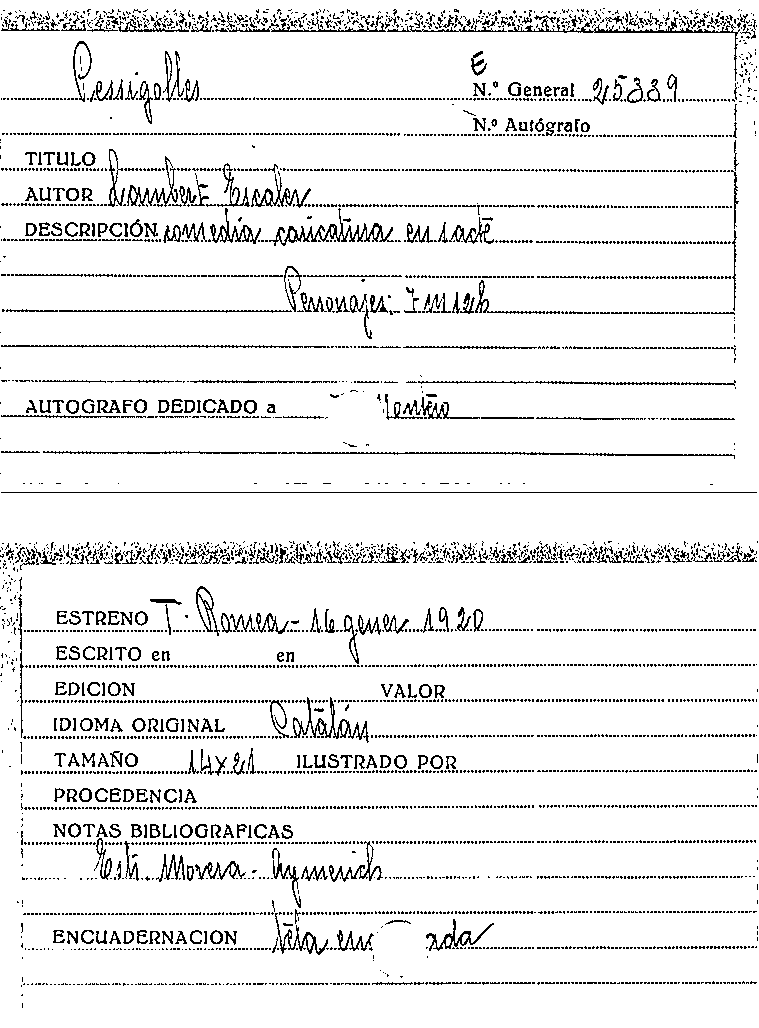 Pessigolles
E
N.º General 25339
N.º Autógrafo
TITULO
AUTOR Lambert Escaler
DESCRIPCIÓN comedia caricatura en 1 acte
Personajes: 7 m 12h
AUTOGRAFO DEDICADO a
ESTRENO T. Romea - 16 gener 1920
ESCRITO en en
EDICION VALOR
IDIOMA ORIGINAL Catalán
TAMAÑO 14x21 ILUSTRADO POR
PROCEDENCIA
NOTAS BIBLIOGRAFICAS
Estr. Morera - Aymerich
ENCUADERNACION tela